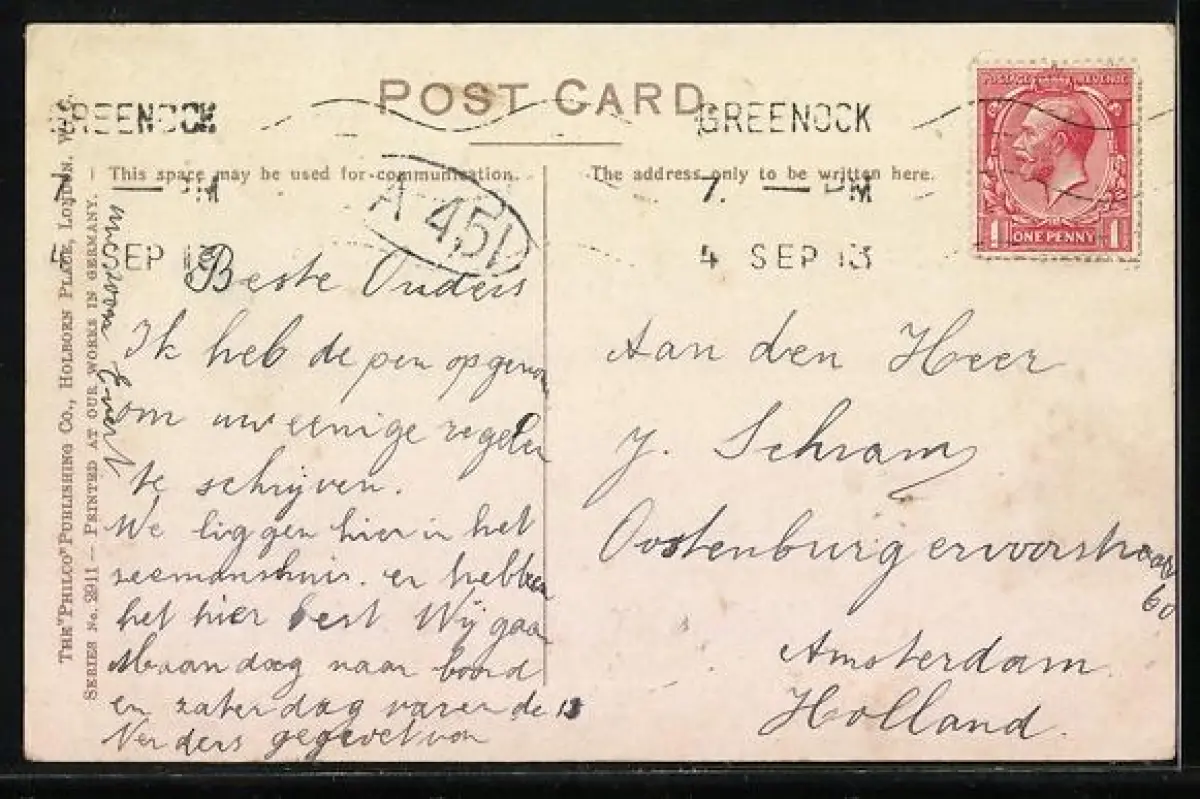 POST CARD.
GREENOCK
7. — PM
4 SEP 13
GREENOCK
7. — PM
4 SEP 13
This space may be used for communication.
The address only to be written here.
A 451
ONE PENNY
1 1
POSTAGE REVENUE
THE "PHILCO" PUBLISHING CO., HOLBORN PLACE, LONDON. W.C.
SERIES No. 2911 — PRINTED AT OUR WORKS IN GERMANY.
Beste Ouders
Ik heb de pen opgenom
om uw eenige regelen
te schrijven.
We liggen hier in het
zeemanshuis. en hebben
het hier best Wij gaan
Maandag naar boord
en zaterdag varen de 13
Verders gegroet van
Evert
Aan den Heer
J. Schram
Oostenburgervoorstraat
60
Amsterdam
Holland.